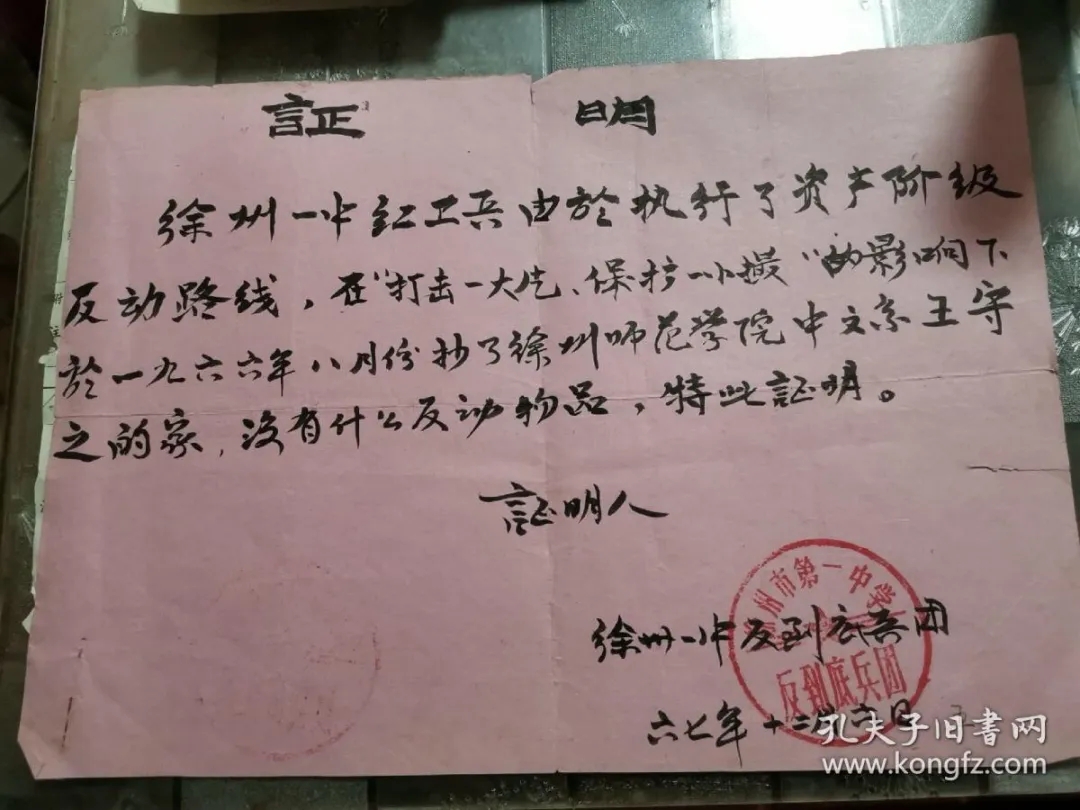 証 明
徐州一中红卫兵由於执行了资产阶级
反动路线，在“打击一大片、保护一小撮”的影响下
於一九六六年八月份抄了徐州师范学院中文系王守
之的家，没有什么反动物品，特此証明。
証明人
徐州市第一中学
徐州一中反到底兵团
反到底兵团
六七年十二月六日
孔夫子旧书网
www.kongfz.com